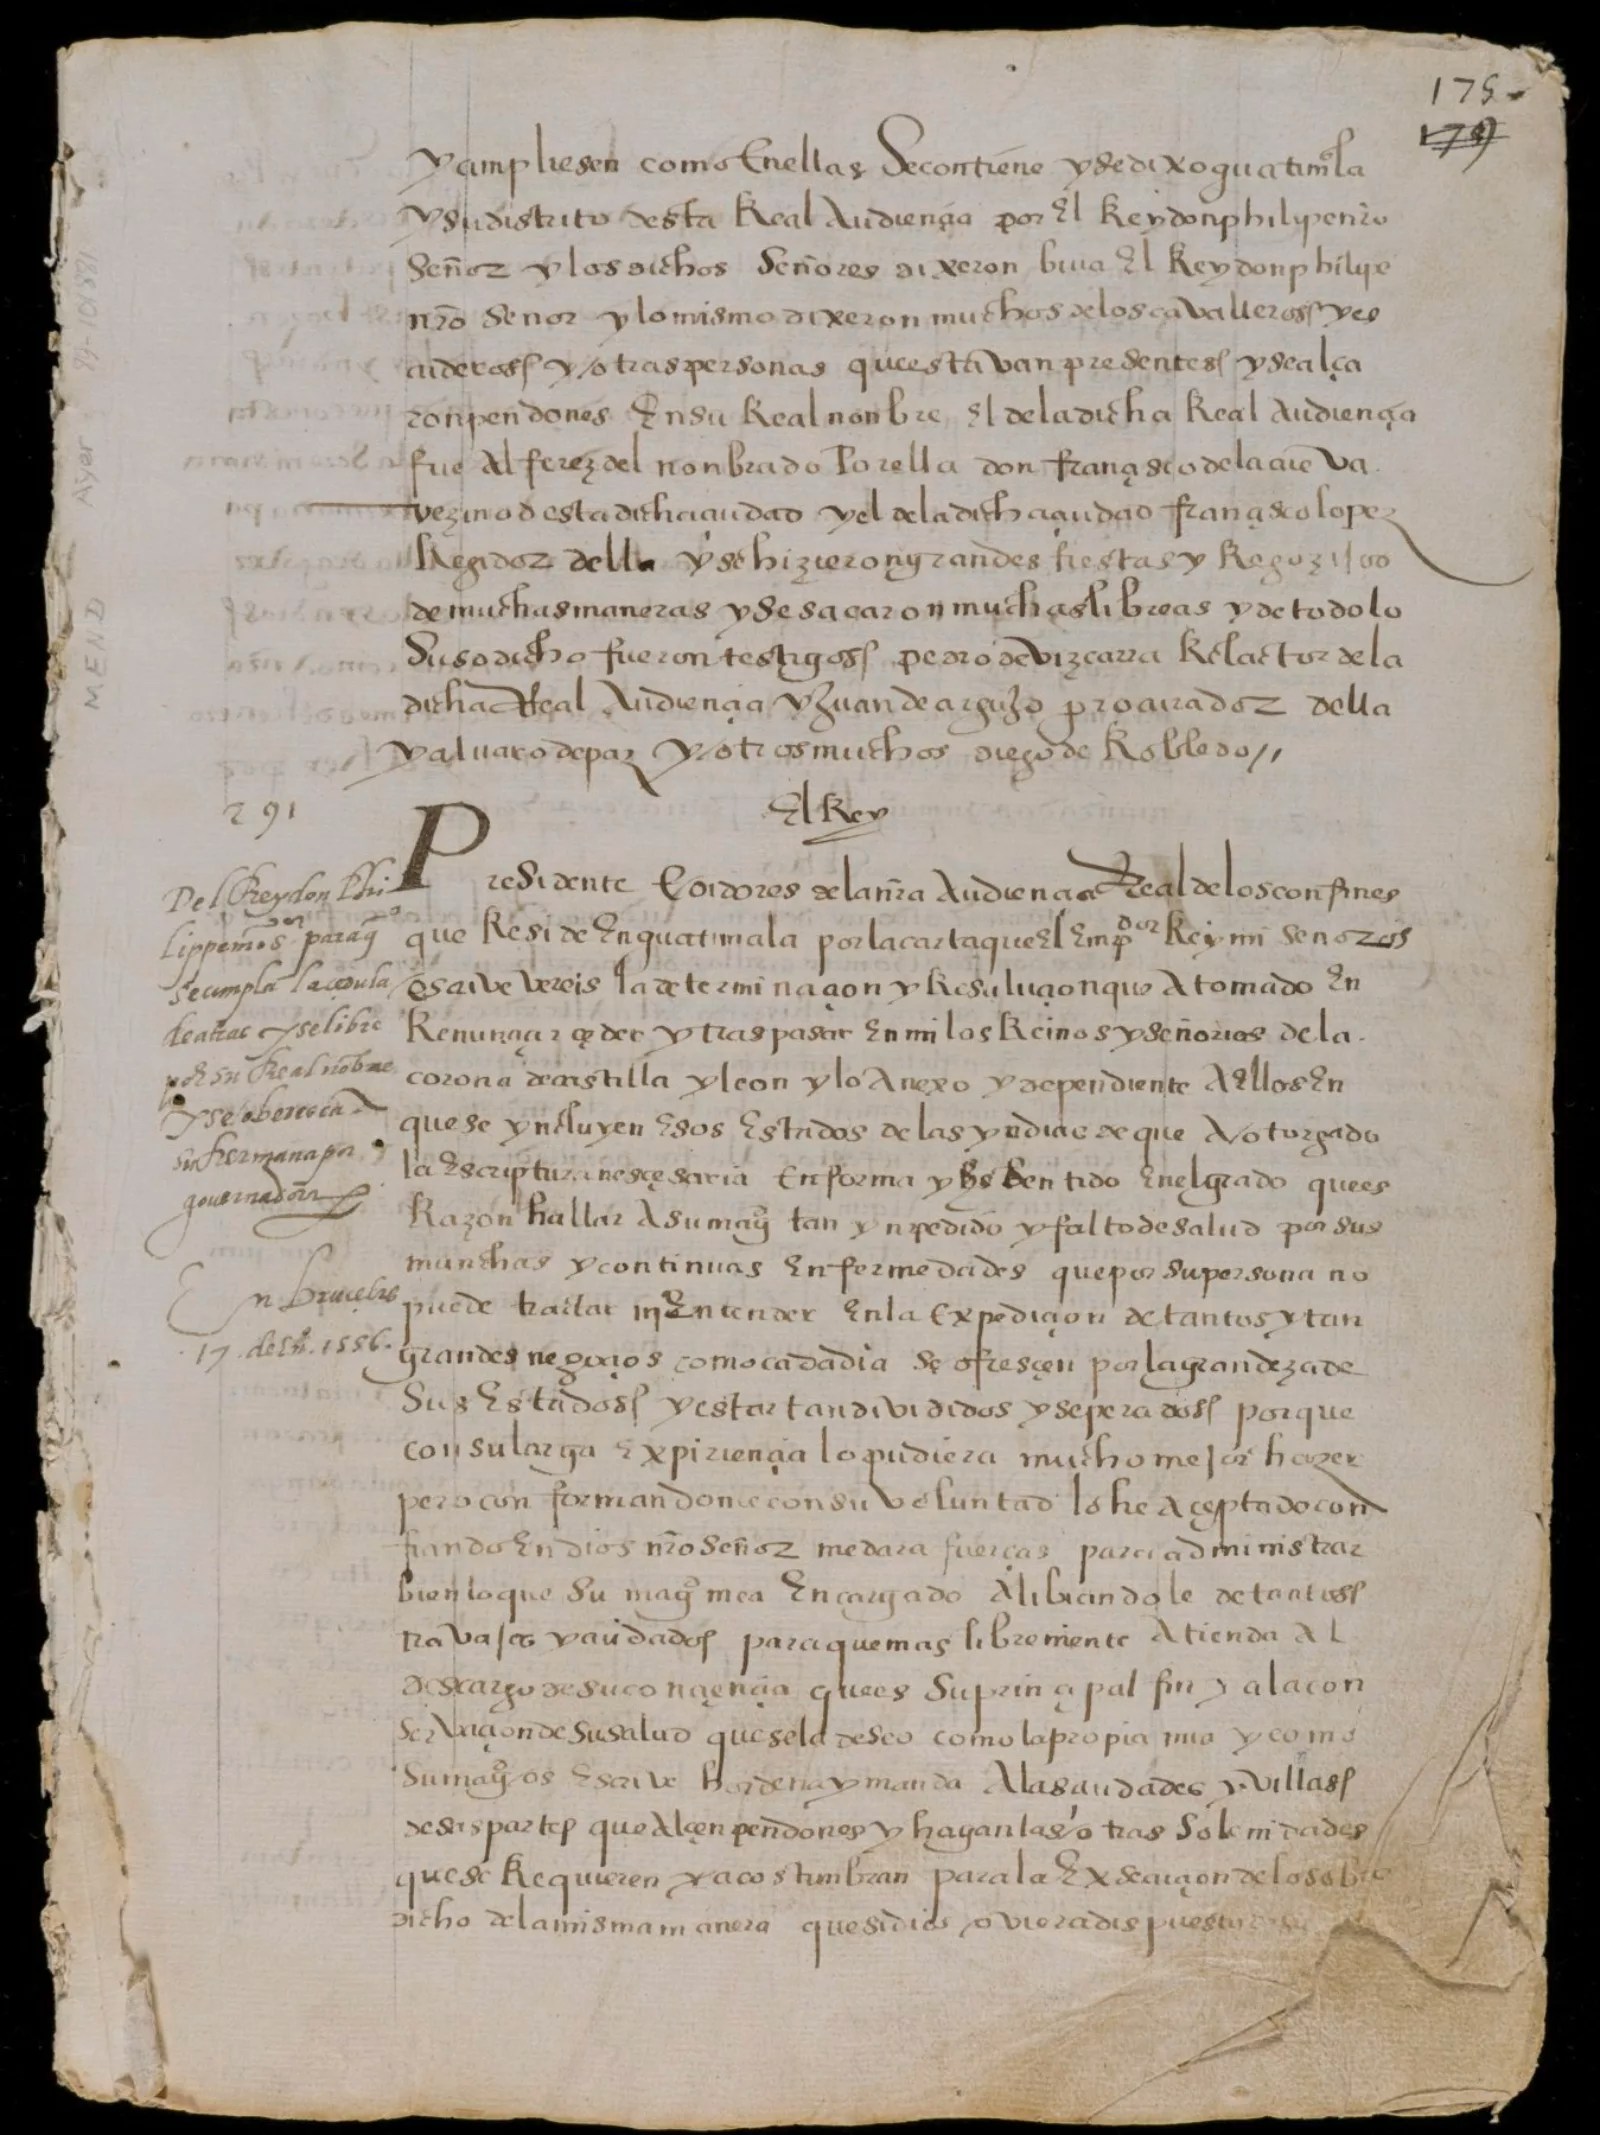 175
179
y cumpliesen como En ellas Se contiene y se dixo guatimala
y su distrito desta Real Audiençia por El Rey don philipe nro
Señor y los dichos Señores dixeron biva El Rey don philipe
nro Señor y lo mismo dixeron muchos de los cavalleross y
y otras personas que estavan presentess y se alça
ron pendones En su Real nonbre El de la dicha Real Audiençia
fue Alferez del nonbrado por ella don françisco de la cueva
vezino desta dicha ciudad y el de la dicha çiudad françisco lopez
Regidor della y se hizieron grandes fiestas y Regozijos
de muchas maneras y se sacaron muchas libreas y de todo lo
Susodicho fueron testigoss pedro de vizcarra Relactor de la
dicha Real Audiençia y Juan de argujo procurador della
y alvaro de paz y otros muchos diego de Robledo //
291
El Rey
Del Rey don Phi
lippe nro sor para q
se cumpla la cedula
de atras y se libre
por su Real nobre
y se obedezca a
su hermana por
governadora
En bruçelas
17. de En. 1556.
Presidente E oidores de la nra Audiençia Real de los confines
que Reside En guatimala por la carta que El Empor Rey mi Señor os
escrive vereis la determinaçon y Resuluçon que A tomado En
Renunçiar çeder y traspasar En mi los Reinos y señorios de la
corona de castilla y leon y lo Anexo y dependiente A Ellos En
que se yncluyen Esos Estados de las yndias de que A otorgado
la Escriptura nesçesaria En forma y he sentido En el grado que es
Razon hallar A su magd tan ynpedido y falto de salud por sus
munchas y continuas Enfermedades que por su persona no
puede tractar ni Entender En la Expediçion de tantos y tan
grandes negoçios como cada dia se ofresçen por la grandeza de
Sus Estadoss y estar tan divididos y seperadoss porque
con su larga Expiriençia lo pudiera mucho mejor hazer
pero conformandome con su voluntad lo he Açeptado con
fiando En dios nro Señor me dara fuerças para administrar
bien lo que Su magd me a Encargado Alibiandole de tantoss
travajos y cuidados para que mas libremente Atienda Al
descargo de su conçiençia que es Su prinçipal fin y a la con
servaçion de Su salud que se la deseo como la propia mia y como
Su magd os Escrive hordena y manda A las ciudades y villass
desas partes que Alçen pendones y hagan las otras Solenidades
que se Requieren y acostunbran para la Exsecuçion de lo sobre
dicho de la misma manera que si dios oviera dispuesto